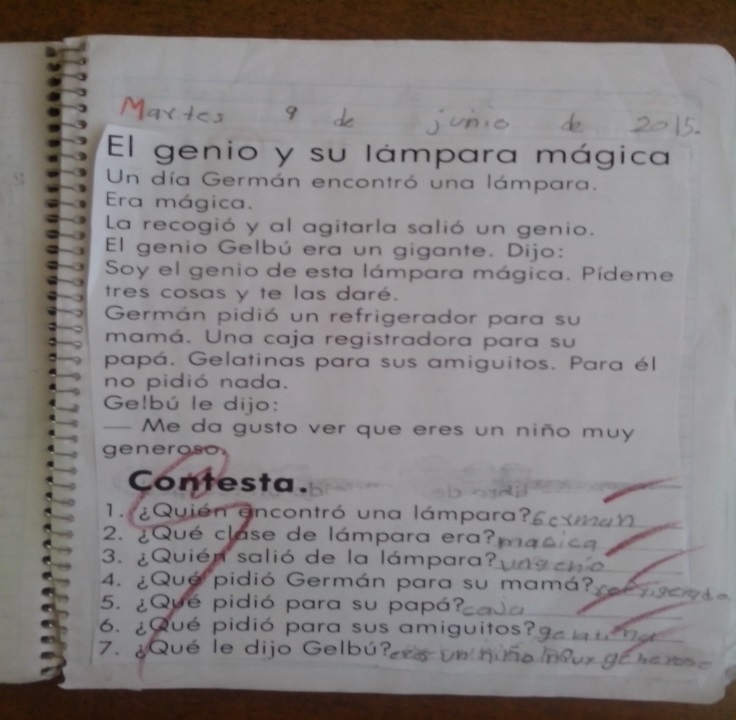 Martes 9 de junio de 2015.
El genio y su lámpara mágica
Un día Germán encontró una lámpara.
Era mágica.
La recogió y al agitarla salió un genio.
El genio Gelbú era un gigante. Dijo:
Soy el genio de esta lámpara mágica. Pídeme
tres cosas y te las daré.
Germán pidió un refrigerador para su
mamá. Una caja registradora para su
papá. Gelatinas para sus amiguitos. Para él
no pidió nada.
Gelbú le dijo:
— Me da gusto ver que eres un niño muy
generoso.
Contesta.
1. ¿Quién encontró una lámpara? German
2. ¿Qué clase de lámpara era? magica
3. ¿Quién salió de la lámpara? un genio
4. ¿Qué pidió Germán para su mamá?
5. ¿Qué pidió para su papá? caja
6. ¿Qué pidió para sus amiguitos? gelatina
7. ¿Qué le dijo Gelbú? eres un niño muy generoso